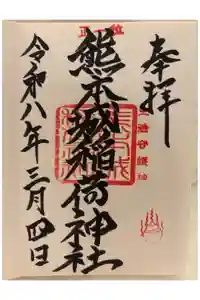 奉拝
正一位
熊本城稲荷神社
令和八年三月四日